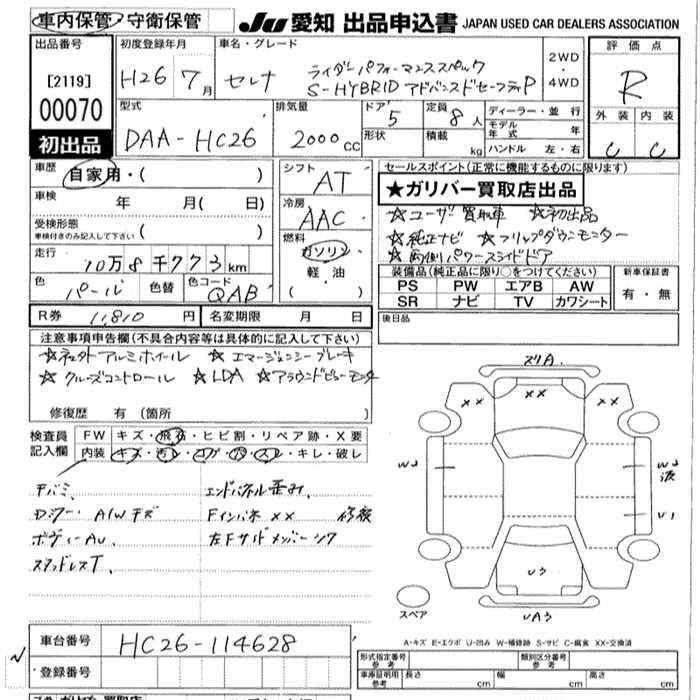 車内保管・守衛保管
JU 愛知 出品申込書 JAPAN USED CAR DEALERS ASSOCIATION
出品番号
[2119]
00070
初出品
初度登録年月
H26 7月
車名・グレード
セレナ
ライダーパフォーマンススペック
S-HYBRID アドバンスドセーフティP
2WD
・
4WD
評価点
R
外装 内装
C C
型式
DAA-HC26
排気量
2000cc
ドア
5
形状
定員
8人
積載 kg
ディーラー・並行
モデル年式 年
ハンドル 左・右
車歴
自家用・( )
車検
年 月( 日)
受検形態
車検付きのみ記入して下さい ( )
走行
10万8千773km
色
パール
色替
色コード
QAB
シフト
AT
冷房
AAC
燃料
ガソリン
軽油
( )
セールスポイント(正常に機能するものに限ります)
★ガリバー買取店出品
☆ユーザー買取車 ☆初出品
☆純正ナビ ☆フリップダウンモニター
☆両側パワースライドドア
装備品(純正品に限り○をつけてください)
PS PW エアB AW
SR ナビ TV カワシート
新車保証書
有・無
R券 11,810円
名変期限 月 日
後日品
注意事項申告欄(不具合内容等は具体的に記入して下さい)
☆社外アルミホイール ☆エマージェンシーブレーキ
☆クルーズコントロール ☆LDA ☆アラウンドビューモニター
修復歴 有 (箇所 )
検査員
記入欄
FW キズ・飛石・ヒビ割・リペア跡・X要
内装 キズ・汚レ・コゲ・穴・スレ・キレ・破レ
エンドパネル歪み、
A/Wキズ
Fインパネ XX 修復
ボディーAU、
左Fサイドメンバーシワ
スタッドレスT、
ズリA、
XX XX XX
W2 W2
U1
U3
UA3
スペア
A-キズ E-エクボ U-凹み W-補修跡 S-サビ C-腐食 XX-交換済
車台番号 HC26-114628
登録番号
形式指定番号
参考
類別区分番号
参考
車庫証明用
参考
長さ cm 幅 cm 高さ cm